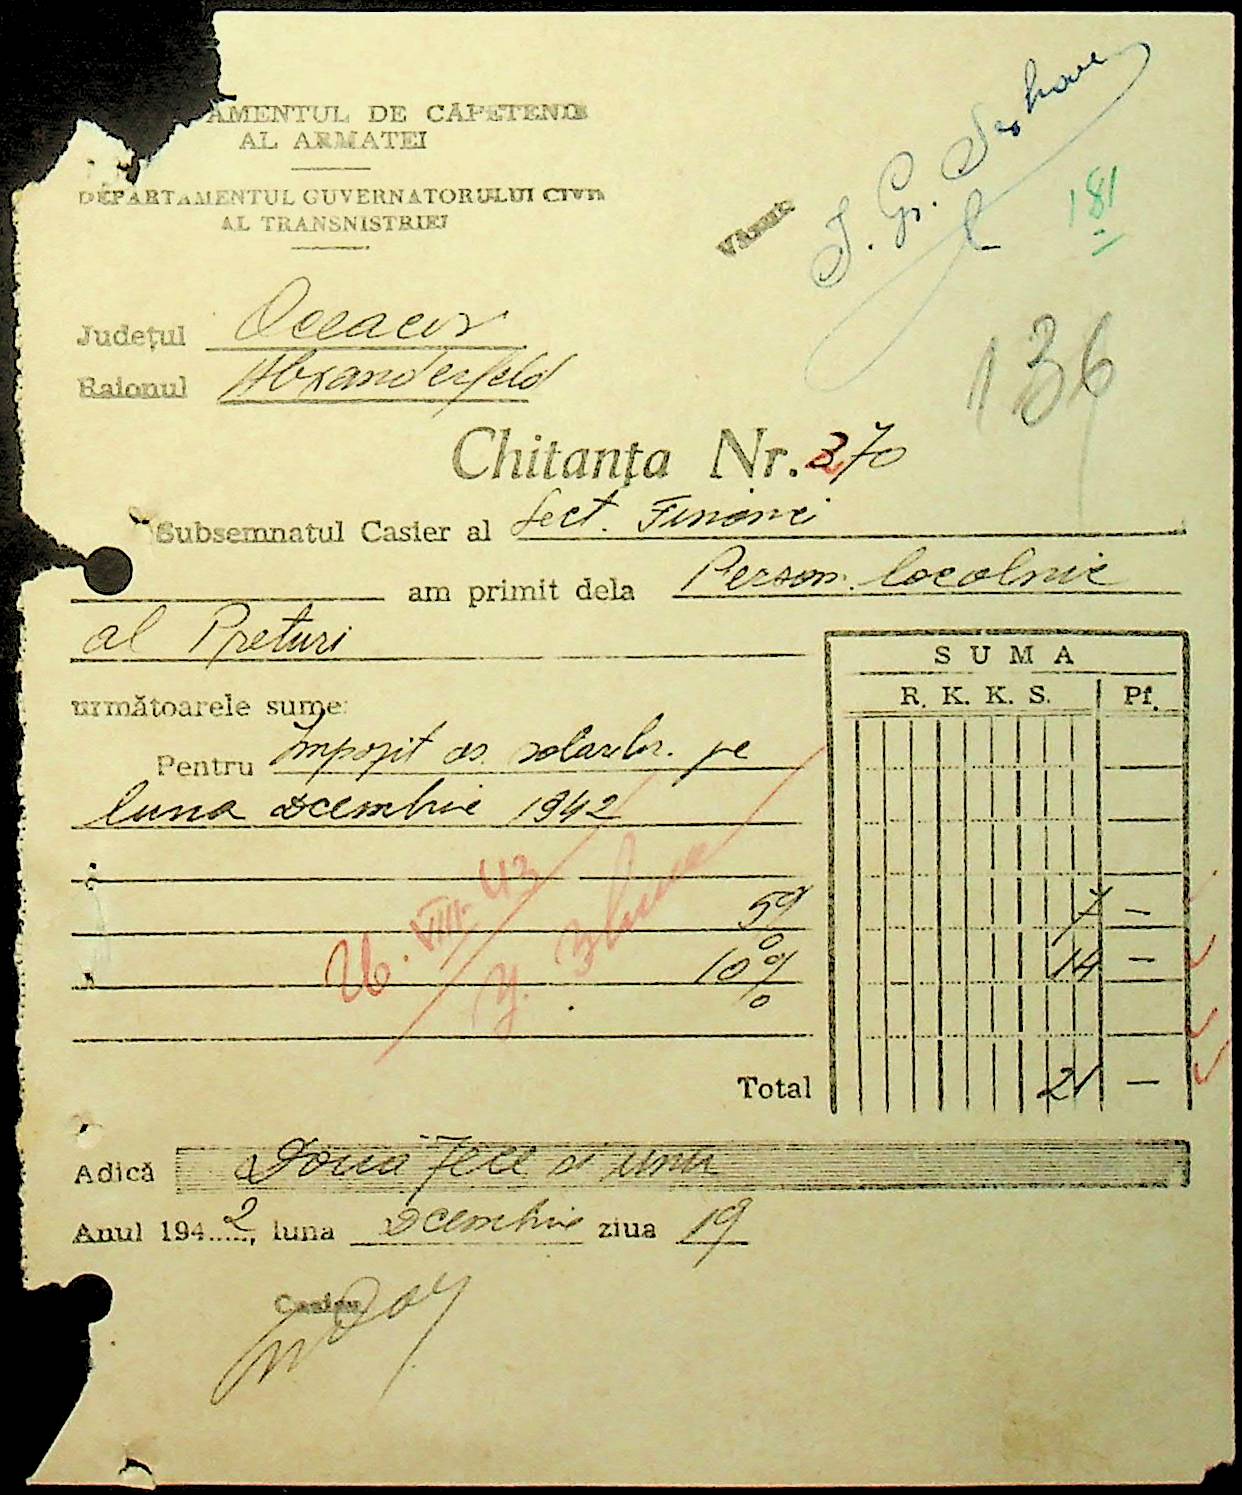 AMENTUL DE CĂPETENIE
AL ARMATEI
DEPARTAMENTUL GUVERNATORULUI CIVIL
AL TRANSNISTRIEI
VĂZUT
181
136
Județul Oceacov
Raionul Alexanderfeld
Chitanța Nr. 370
Subsemnatul Casier al Sect. Financi
am primit dela Person. localnic
al Preturi
următoarele sume:
Pentru Impozit as. salarilor. pe
luna decembrie 1942
SUMA
R. K. K. S. Pf.
5% 7 —
10% 14 —
26. VIII. 43
Total 21 —
Adică Două zece si unu
Anul 1942, luna decembrie ziua 19
Casier